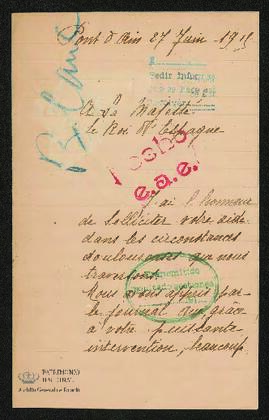 Pont d'Ain 27 Juin 1915
Pedir
A Sa Majesté
le Roi d'Espagne
e.a.e.
J'ai l'honneur
de solliciter votre aide
dans les circonstances
douloureuses que nous
traversons.
Nous avons appris par
le journal que grâce
à votre puissante
intervention, beaucoup
PATRIMONIO
NACIONAL
Archivo General de Palacio